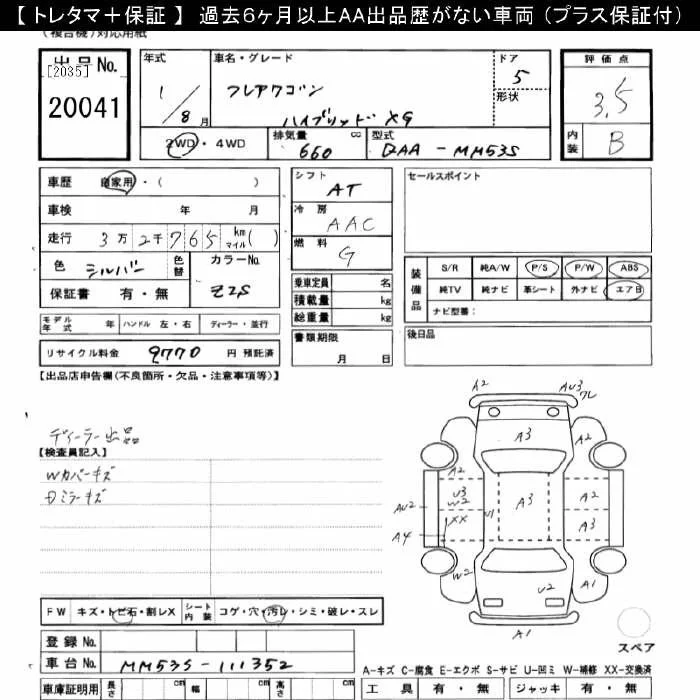 【 トレタマ＋保証 】 過去６ヶ月以上AA出品歴がない車両 （プラス保証付）
(複合機)対応用紙
出品No. [2035]
20041
年式
1/8月
車名・グレード
フレアワゴン
ハイブリッド XG
ドア
5
形状
評価点
3,5
内装
B
2WD・4WD
排気量 cc
660
型式
DAA-MM53S
車歴 自家用・( )
車検 年 月
走行 3万2千765 km マイル( )
色 シルバー 色替 カラーNo. Z2S
保証書 有・無
シフト AT
冷房 AAC
燃料 G
乗車定員 名
積載量 kg
総重量 kg
セールスポイント
装備品
S/R 純A/W P/S P/W ABS
純TV 純ナビ 革シート 外ナビ エアB
ナビ型番：
モデル年式 年 ハンドル 左・右 ディーラー・並行
書類期限 月 日
後日品
リサイクル料金 9770 円 預託済
【出品店申告欄(不良箇所・欠品・注意事項等)】
ディーラー出品
【検査員記入】
Wカバーキズ
Dミラーキズ
A2 AU3 ワレ
A3 A2
A2
U3 W2 A3 A2
AU2 XX U1 A3
A4
W2 U2 A1
A1
スペア
FW キズ・トビ石・割レX シート内装 コゲ・穴・汚レ・シミ・破レ・スレ
登録No.
車台No. MM53S-111352
A-キズ C-腐食 E-エクボ S-サビ U-凹ミ W-補修 XX-交換済
車庫証明用 長さ cm 幅 cm 高さ cm
工具 有・無 ジャッキ 有・無